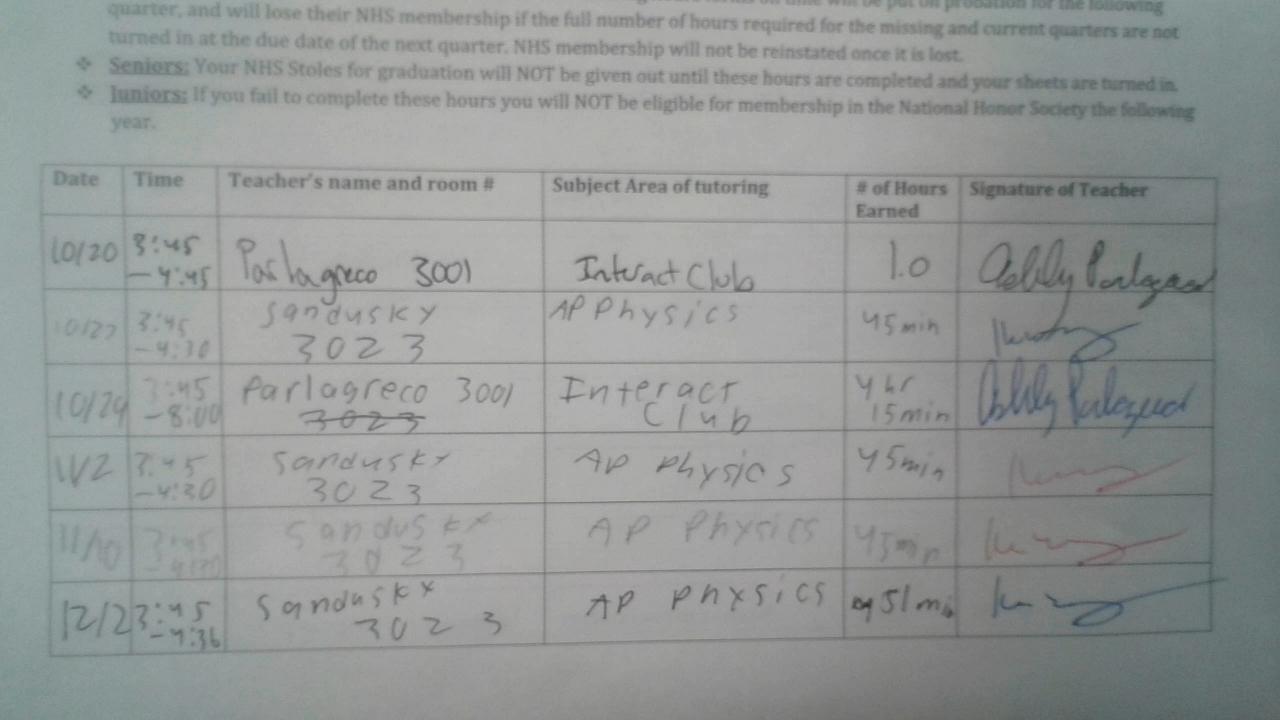 quarter, and will lose their NHS membership if the full number of hours required for the missing and current quarters are not
turned in at the due date of the next quarter. NHS membership will not be reinstated once it is lost.
❖ Seniors: Your NHS Stoles for graduation will NOT be given out until these hours are completed and your sheets are turned in.
❖ Juniors: If you fail to complete these hours you will NOT be eligible for membership in the National Honor Society the following
year.
Date Time Teacher's name and room # Subject Area of tutoring # of Hours Earned Signature of Teacher
10/20 3:45 - 4:45 Parlagreco 3001 Interact Club 1.0
10/27 3:45 - 4:30 Sandusky 3023 AP Physics 45 min
10/29 3:45 - 8:00 Parlagreco 3001 3023 Interact Club 4 hr 15 min
11/2 3:45 - 4:30 Sandusky 3023 AP Physics 45 min
11/10 3:45 - 4:30 Sandusky 3023 AP Physics 45 min
12/2 3:45 - 4:36 Sandusky 3023 AP Physics 51 min